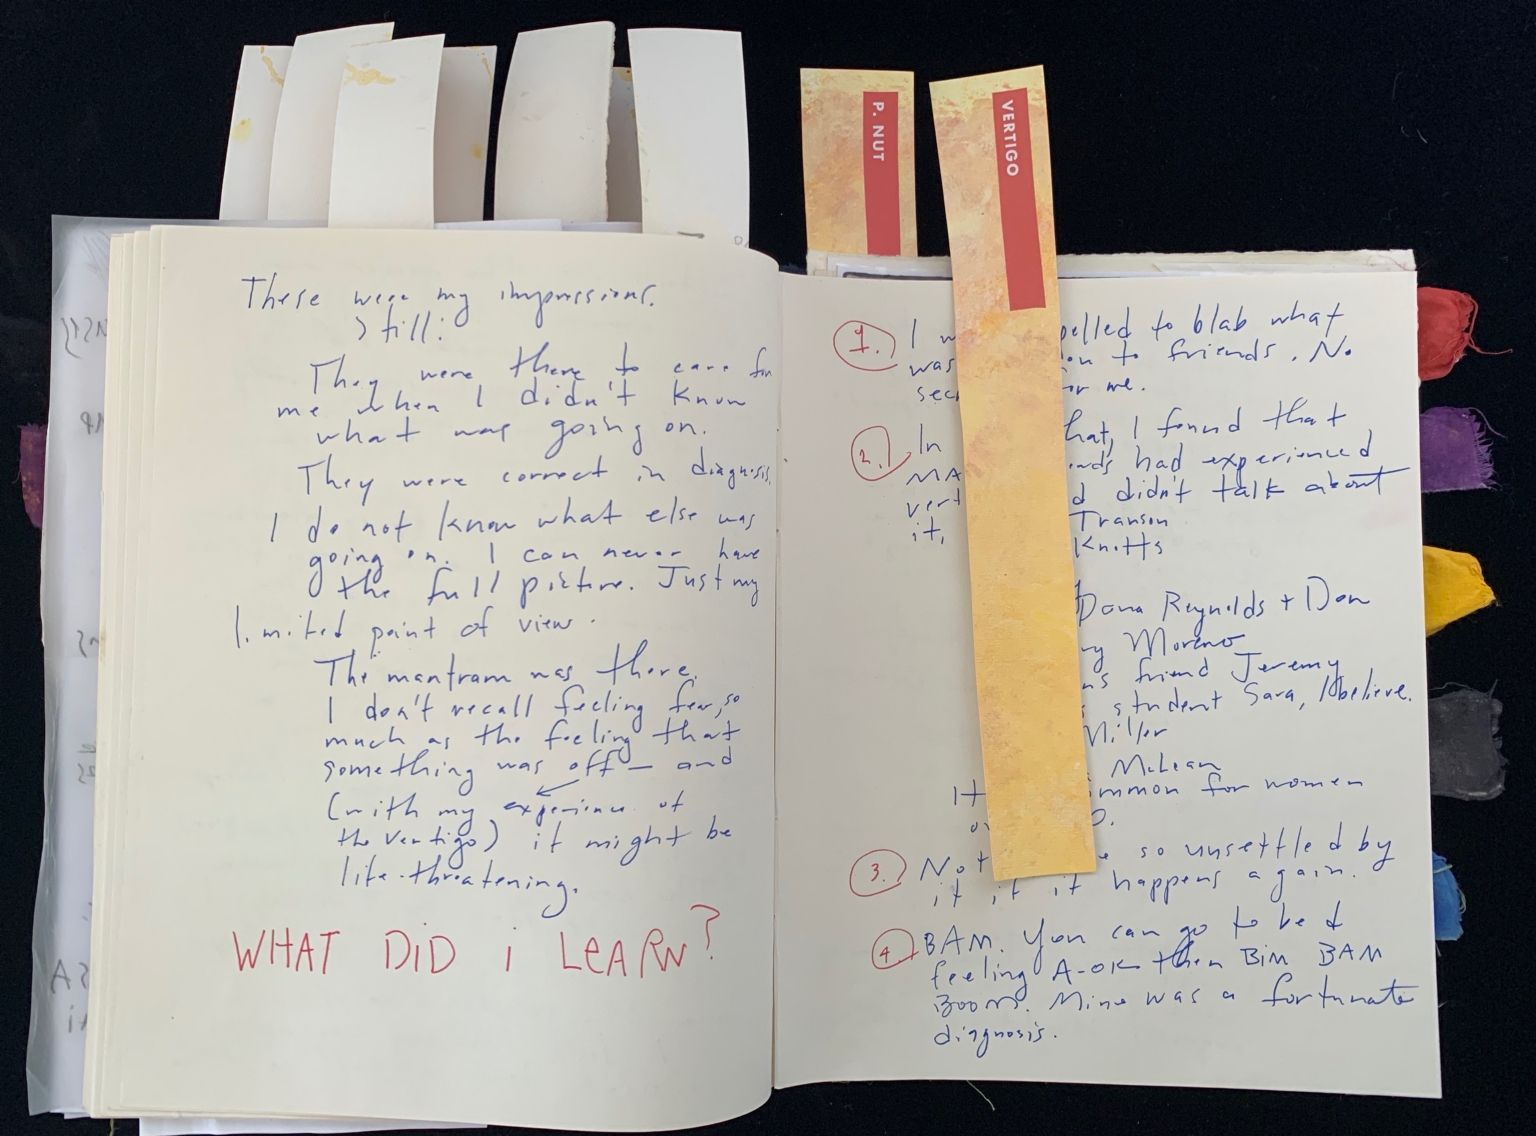 P. NUT
VERTIGO
These were my impressions.
Still:
They were there to care for
me when I didn't know
what was going on.
They were correct in diagnosis.
I do not know what else was
going on. I can never have
the full picture. Just my
limited point of view.
The mantram was there.
I don't recall feeling fear, so
much as the feeling that
something was off — and
(with my experience of
the vertigo) it might be
life-threatening.
WHAT DiD i LeARN?
1. I w pelled to blab what
was on to friends. No
sec or me.
2. In hat, I found that
MA nds had experienced
vert d didn't talk about
it, Transon
Knotts
Dona Reynolds + Don
ny Moreno
ns friend Jeremy
s student Sara, I believe.
Miller
McLean
It mmon for women
o 0.
3. Not e so unsettled by
it if it happens again.
4. BAM. You can go to bed
feeling A-OK then BIM BAM
BOOM. Mine was a fortunate
diagnosis.